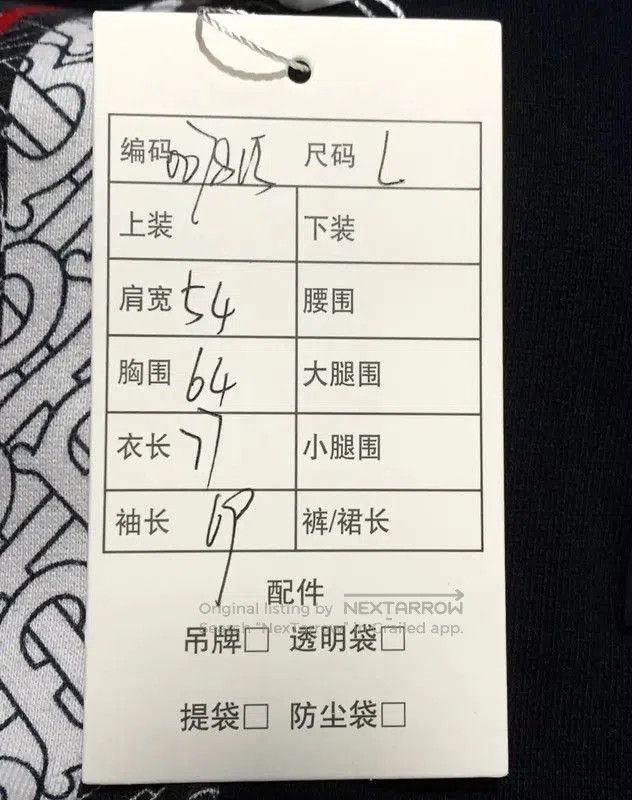 编码 尺码 L
上装 下装
肩宽 54 腰围
胸围 64 大腿围
衣长 77 小腿围
袖长 裤/裙长
配件
Original listing by NEXTARROW
Search "NexTarrow" in Grailed app.
吊牌□ 透明袋□
提袋□ 防尘袋□